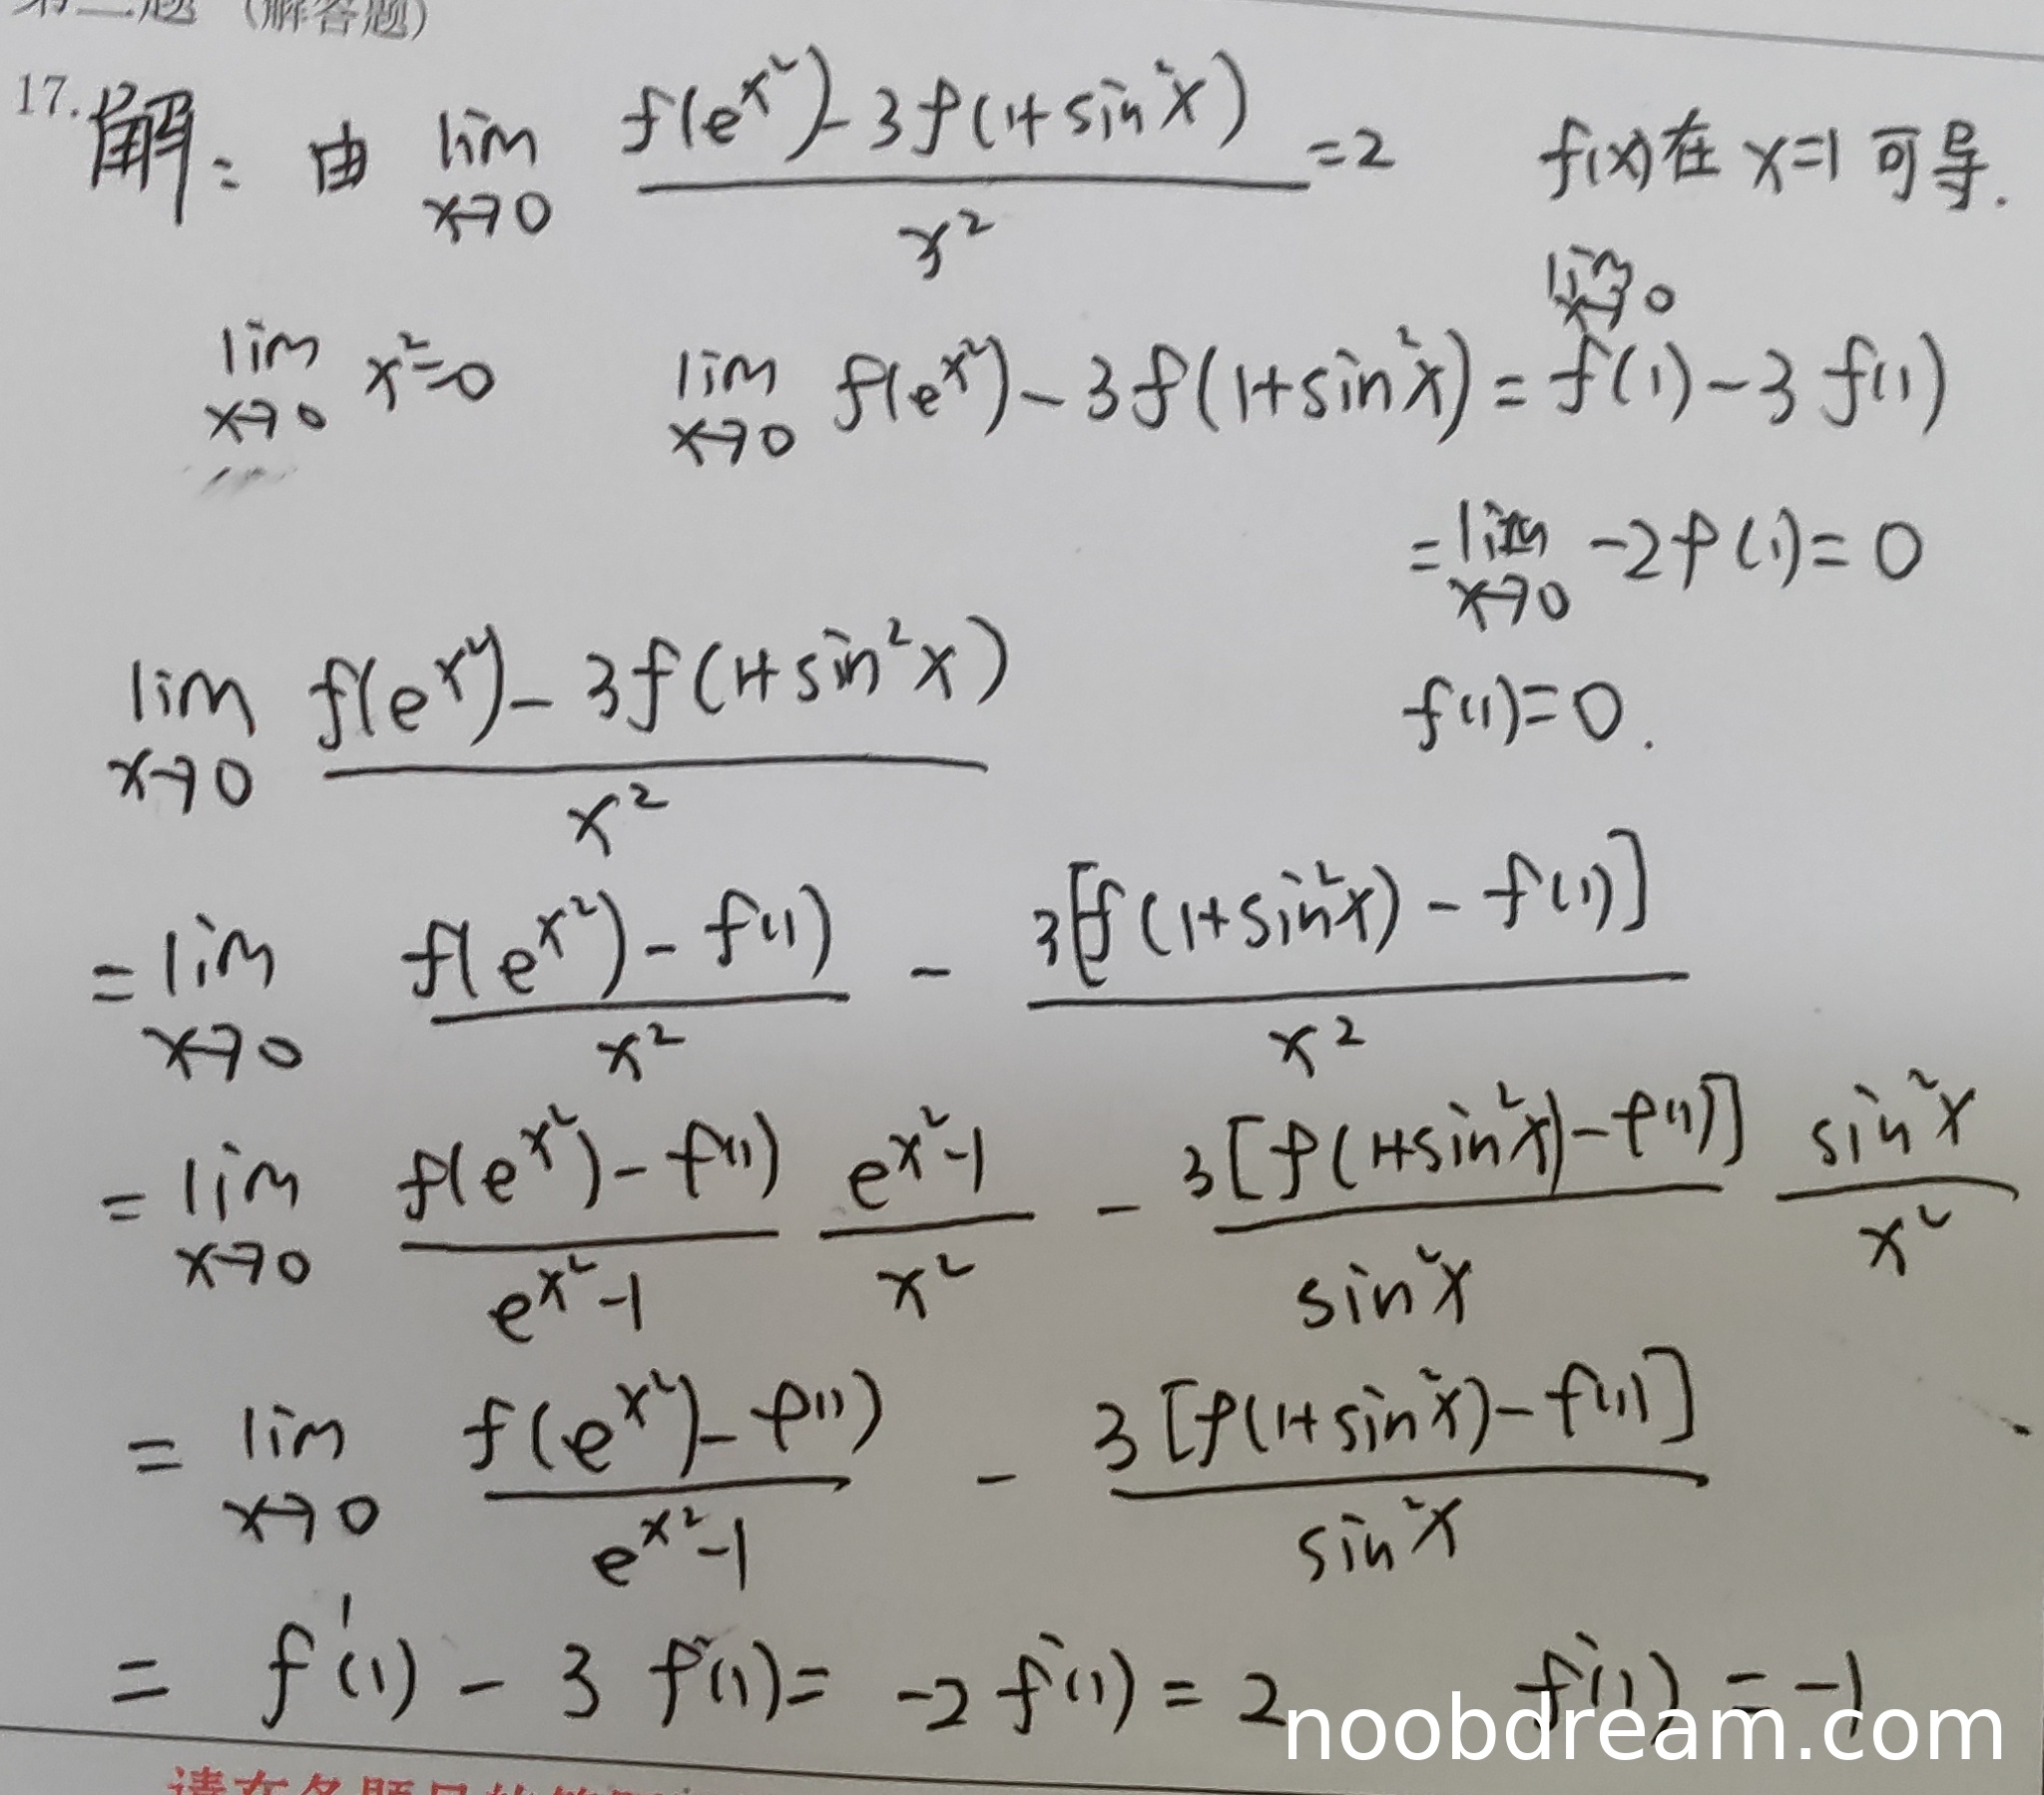 (解答题)
17. 解: 由 lim x→0 (f(e^{x²}) - 3f(1+sin²x)) / x² = 2 f(x)在 x=1 可导.
lim x→0 x²=0 lim x→0 f(e^{x²}) - 3f(1+sin²x) = lim x→0 f(1) - 3f(1)
= lim x→0 -2f(1) = 0
f(1)=0.
lim x→0 (f(e^{x²}) - 3f(1+sin²x)) / x²
= lim x→0 (f(e^{x²}) - f(1)) / x² - 3[f(1+sin²x) - f(1)] / x²
= lim x→0 (f(e^{x²}) - f(1)) / (e^{x²}-1) (e^{x²}-1) / x² - 3[f(1+sin²x) - f(1)] / sin²x sin²x / x²
= lim x→0 (f(e^{x²}) - f(1)) / (e^{x²}-1) - 3[f(1+sin²x) - f(1)] / sin²x
= f'(1) - 3f'(1) = -2f'(1) = 2 f'(1) = -1
noobdream.com